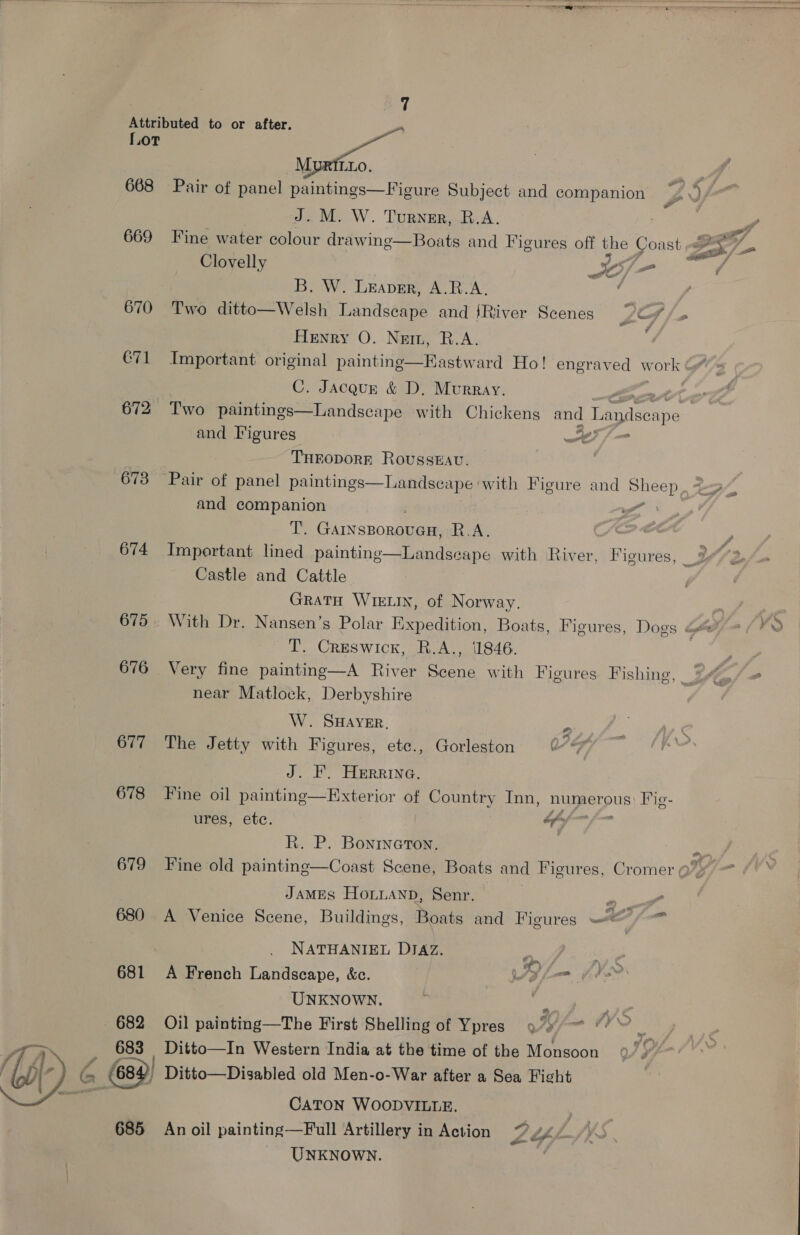 7
Attributed to or after.
LOT
MURILLO.
668 Pair of panel paintings—Figure Subject and companion
J. M. W. TURNER, R.A.
669 Fine water colour drawing—Boats and Figures off the Coast
Clovelly
B. W. LEADER, A.R.A.
670 Two ditto—Welsh Landscape and River Scenes
HENRY O. NEIL, R.A.
671 Important original painting—Eastward Ho! engraved work
C. JACQUE & D. MURRAY.
672 Two paintings—Landscape with Chickens and Landscape
and Figures
THEODORE ROUSSEAU.
673 Pair of panel paintings—Landscape with Figure and Sheep
and companion
T. GAINSBOROUGH, R.A.
674 Important lined painting—Landscape with River, Figures,
Castle and Cattle
GRATH WIELIN, of Norway.
675 With Dr. Nansen's Polar Expedition, Boats, Figures, Dogs
T. CRESWICK, R.A., 1846.
676 Very fine painting—A River Scene with Figures Fishing,
near Matlock, Derbyshire
W. SHAYER.
677 The Jetty with Figures, etc., Gorleston
J. F. HERRING.
678 Fine oil painting—Exterior of Country Inn, numerous Fig-
ures, etc.
R. P. BONINGTON.
679 Fine old painting—Coast Scene, Boats and Figures, Cromer
JAMES HOLLAND, Senr.
680 A Venice Scene, Buildings, Boats and Figures
NATHANIEL DIAZ.
681 A French Landscape, &c.
UNKNOWN.
682 Oil painting—The First Shelling of Ypres
683 Ditto—In Western India at the time of the Monsoon
684 Ditto—Disabled old Men-o-War after a Sea Fight
CATON WOODVILLE.
685 An oil painting—Full Artillery in Action
UNKNOWN.